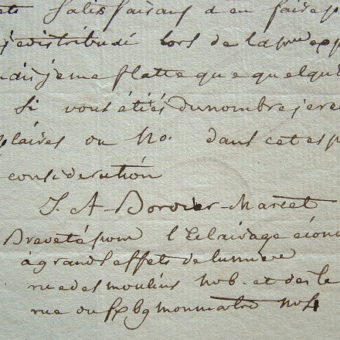 satisfaisant d'en faire p
redistribué lors de la pme exp
dis je me flatte que quelqu
Si vous étiés du nombre je re
plaires ou No. dans cet esp
consideration
I. A. Bordier-Marcet
Breveté pour l'Eclairage écono
à grands effets de lumiere
rue des moulins No 6. et des le
rue du fxbg monmatre No 4